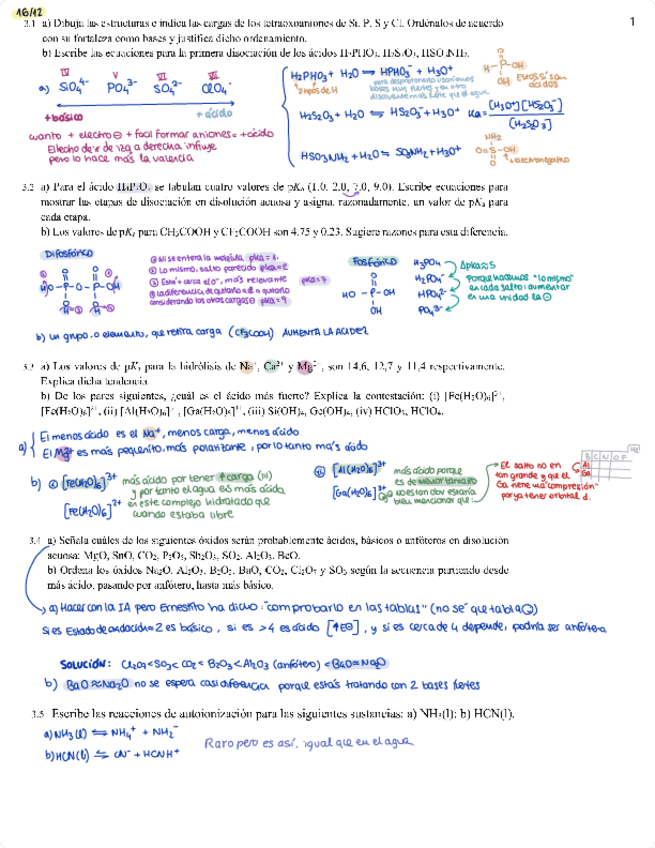 16/12
1
3.1 a) Dibuja las estructuras e indica las cargas de los tetraoxoaniones de Si, P, S y Cl. Ordénalos de acuerdo
con su fortaleza como bases y justifica dicho ordenamiento.
b) Escribe las ecuaciones para la primera disociación de los ácidos H₃PHO₃, H₂S₂O₃, HSO₃NH₂.
IV V VI VII
a) SiO₄⁴⁻ PO₄³⁻ SO₄²⁻ ClO₄⁻
+básico +ácido
cuanto + electro⊖ + facil formar aniones = +ácido
El echo de ir de izq a derecha influye
pero lo hace más la valencia
H₂PHO₃ + H₂O ⇌ HPHO₃⁻ + H₃O⁺
H₂S₂O₃ + H₂O ⇌ HS₂O₃⁻ + H₃O⁺ Ka = [H₃O⁺][HS₂O₃⁻]
[H₂S₂O₃]
HSO₃NH₂ + H₂O ⇌ SO₃NH₂⁻ + H₃O⁺
Estos sí son
ácidos
+ electronegativo
3.2 a) Para el ácido H₄P₂O₇ se tabulan cuatro valores de pKₐ (1.0, 2.0, 7.0, 9.0). Escribe ecuaciones para
mostrar las etapas de disociación en disolución acuosa y asigna, razonadamente, un valor de pKₐ para
cada etapa.
b) Los valores de pKₐ para CH₃COOH y CF₃COOH son 4.75 y 0.23. Sugiere razones para esta diferencia.
DIFOSFÓRICO
① Ni se entera la molécula, pka = 1.
② Lo mismo, salto parecido pka = 2
pka = 7
considerando las otras cargas⊖ pka = 9
FOSFÓRICO
H₃PO₄
H₂PO₄⁻
HPO₄²⁻
PO₄³⁻
Δpka ≈ 5
porque hacemos "lo mismo"
en cada salto: aumentar
en una unidad la ⊖
b) un grupo, o elemento, que retira carga (CF₃COOH) AUMENTA LA ACIDEZ
3.3 a) Los valores de pKₐ para la hidrólisis de Na⁺, Ca²⁺ y Mg²⁺, son 14,6, 12,7 y 11,4 respectivamente.
Explica dicha tendencia.
b) De los pares siguientes, ¿cuál es el ácido más fuerte? Explica la contestación: (i) [Fe(H₂O)₆]³⁺,
[Fe(H₂O)₆]²⁺, (ii) [Al(H₂O)₆]³⁺, [Ga(H₂O)₆]³⁺, (iii) Si(OH)₄, Ge(OH)₄, (iv) HClO₃, HClO₄.
a) El menos ácido es el Na⁺, menos carga, menos ácido
El Mg²⁺ es más pequeñito, más polarizante, por lo tanto más ácido
b) ① [Fe(H₂O)₆]³⁺ más ácido por tener ↑carga (IV)
y por tanto el agua es más ácida
[Fe(H₂O)₆]²⁺ en este complejo hidratado que
cuando estaba libre
② [Al(H₂O)₆]³⁺ más ácido porque
es de menor tamaño
[Ga(H₂O)₆]³⁺
bien mencionar que:
El salto no en
tan grande y que el
Ga tiene una "compresión"
por ya tener orbital d.
B C N O F
Al
Ga
3.4 a) Señala cuáles de los siguientes óxidos serán probablemente ácidos, básicos o anfóteros en disolución
acuosa: MgO, SnO, CO₂, P₂O₅, Sb₂O₃, SO₂, Al₂O₃, BeO.
b) Ordena los óxidos Na₂O, Al₂O₃, B₂O₃, BaO, CO₂, Cl₂O₇ y SO₃ según la secuencia partiendo desde
más ácido, pasando por anfótero, hasta más básico.
a) Hacer con la IA pero Ernestito ha dicho: "comprobarlo en las tablas" (no sé que tabla)
Si es Estado de oxidación = 2 es básico, si es >4 es ácido [↑EO], y si es cerca de 4 depende, podría ser anfótero
SOLUCIÓN: Cl₂O₇ < SO₃ < CO₂ < B₂O₃ < Al₂O₃ (anfótero) < BaO ≈ Na₂O
b) BaO ≈ Na₂O no se espera casi diferencia porque estás tratando con 2 bases fuertes
3.5 Escribe las reacciones de autoionización para las siguientes sustancias: a) NH₃(l); b) HCN(l).
a) NH₃(l) ⇌ NH₄⁺ + NH₂⁻
b) HCN(l) ⇌ CN⁻ + HCNH⁺
Raro pero es así, igual que en el agua